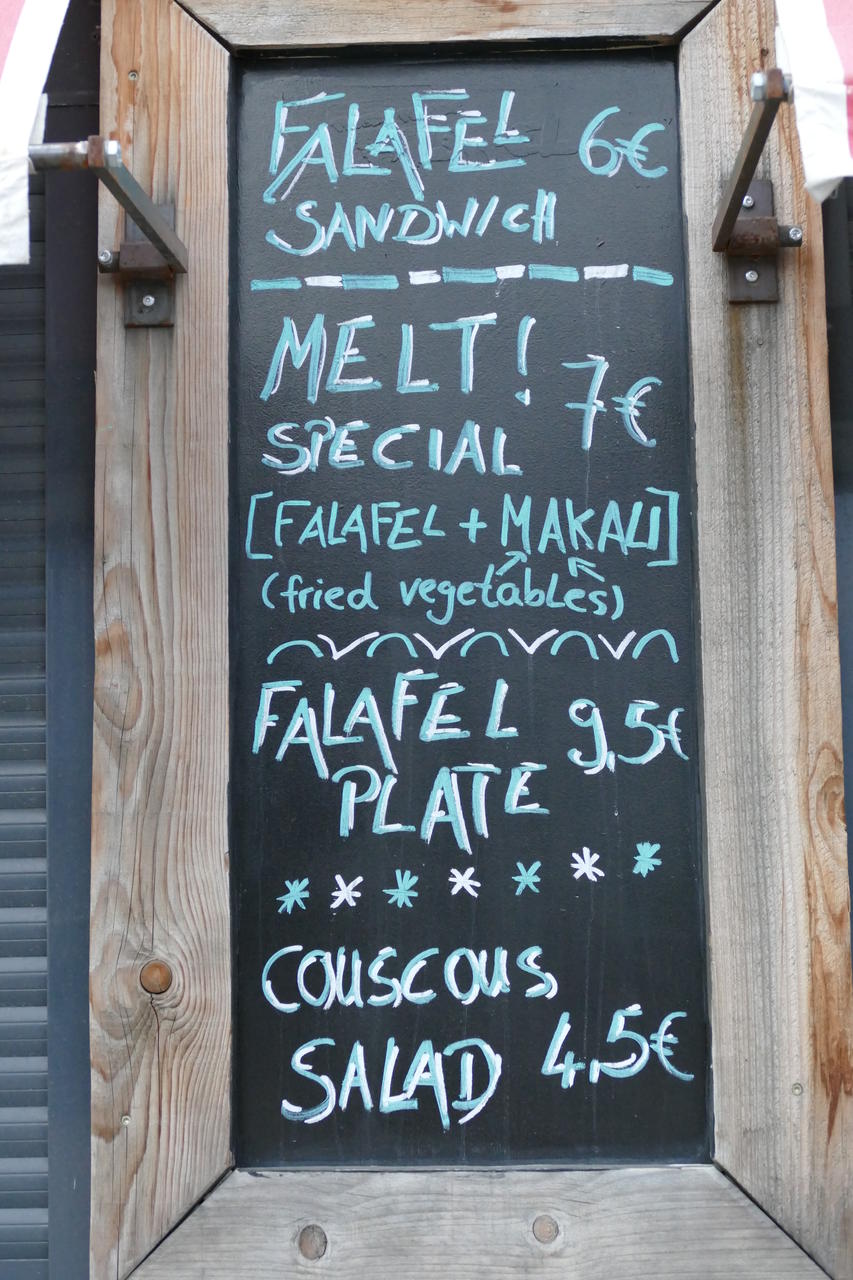 FALAFEL 6€
SANDWICH
MELT!
SPECIAL 7€
[FALAFEL + MAKALI]
(fried vegetables)
FALAFEL 9,5€
PLATE
COUSCOUS
SALAD 4,5€